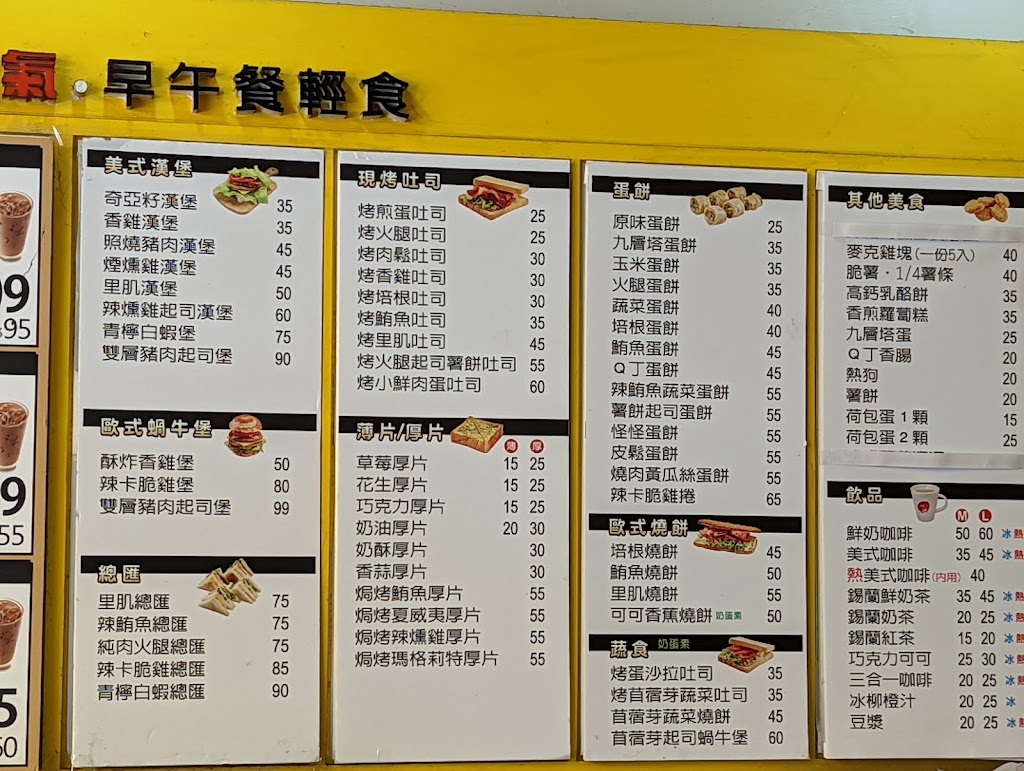 氣·早午餐輕食
99
95
9
55
5
60
美式漢堡
奇亞籽漢堡 35
香雞漢堡 35
照燒豬肉漢堡 45
煙燻雞漢堡 45
里肌漢堡 50
辣燻雞起司漢堡 60
青檸白蝦堡 75
雙層豬肉起司堡 90
歐式蝸牛堡
酥炸香雞堡 50
辣卡脆雞堡 80
雙層豬肉起司堡 99
總匯
里肌總匯 75
辣鮪魚總匯 75
純肉火腿總匯 75
辣卡脆雞總匯 85
青檸白蝦總匯 90
現烤吐司
烤煎蛋吐司 25
烤火腿吐司 25
烤肉鬆吐司 30
烤香雞吐司 30
烤培根吐司 30
烤鮪魚吐司 35
烤里肌吐司 45
烤火腿起司薯餅吐司 55
烤小鮮肉蛋吐司 60
薄片/厚片 薄 厚
草莓厚片 15 25
花生厚片 15 25
巧克力厚片 15 25
奶油厚片 20 30
奶酥厚片 30
香蒜厚片 30
焗烤鮪魚厚片 55
焗烤夏威夷厚片 55
焗烤辣燻雞厚片 55
焗烤瑪格莉特厚片 55
蛋餅
原味蛋餅 25
九層塔蛋餅 35
玉米蛋餅 35
火腿蛋餅 35
蔬菜蛋餅 40
培根蛋餅 40
鮪魚蛋餅 45
Q丁蛋餅 45
辣鮪魚蔬菜蛋餅 55
薯餅起司蛋餅 55
怪怪蛋餅 55
皮鬆蛋餅 55
燒肉黃瓜絲蛋餅 55
辣卡脆雞捲 65
歐式燒餅
培根燒餅 45
鮪魚燒餅 50
里肌燒餅 55
可可香蕉燒餅 奶蛋素 50
蔬食 奶蛋素
烤蛋沙拉吐司 35
烤苜蓿芽蔬菜吐司 35
苜蓿芽蔬菜燒餅 45
苜蓿芽起司蝸牛堡 60
其他美食
麥克雞塊(一份5入) 40
脆薯·1/4薯條 40
高鈣乳酪餅 35
香煎蘿蔔糕 35
九層塔蛋 20
Q丁香腸 20
熱狗 20
薯餅 20
荷包蛋1顆 15
荷包蛋2顆 25
飲品 M L
鮮奶咖啡 50 60 冰 熱
美式咖啡 35 45 冰 熱
熱美式咖啡(內用) 40
錫蘭鮮奶茶 35 45 冰 熱
錫蘭奶茶 20 25 冰 熱
錫蘭紅茶 15 20 冰 熱
巧克力可可 25 30 冰 熱
三合一咖啡 20 25 冰 熱
冰柳橙汁 20 25 冰
豆漿 20 25 冰 熱